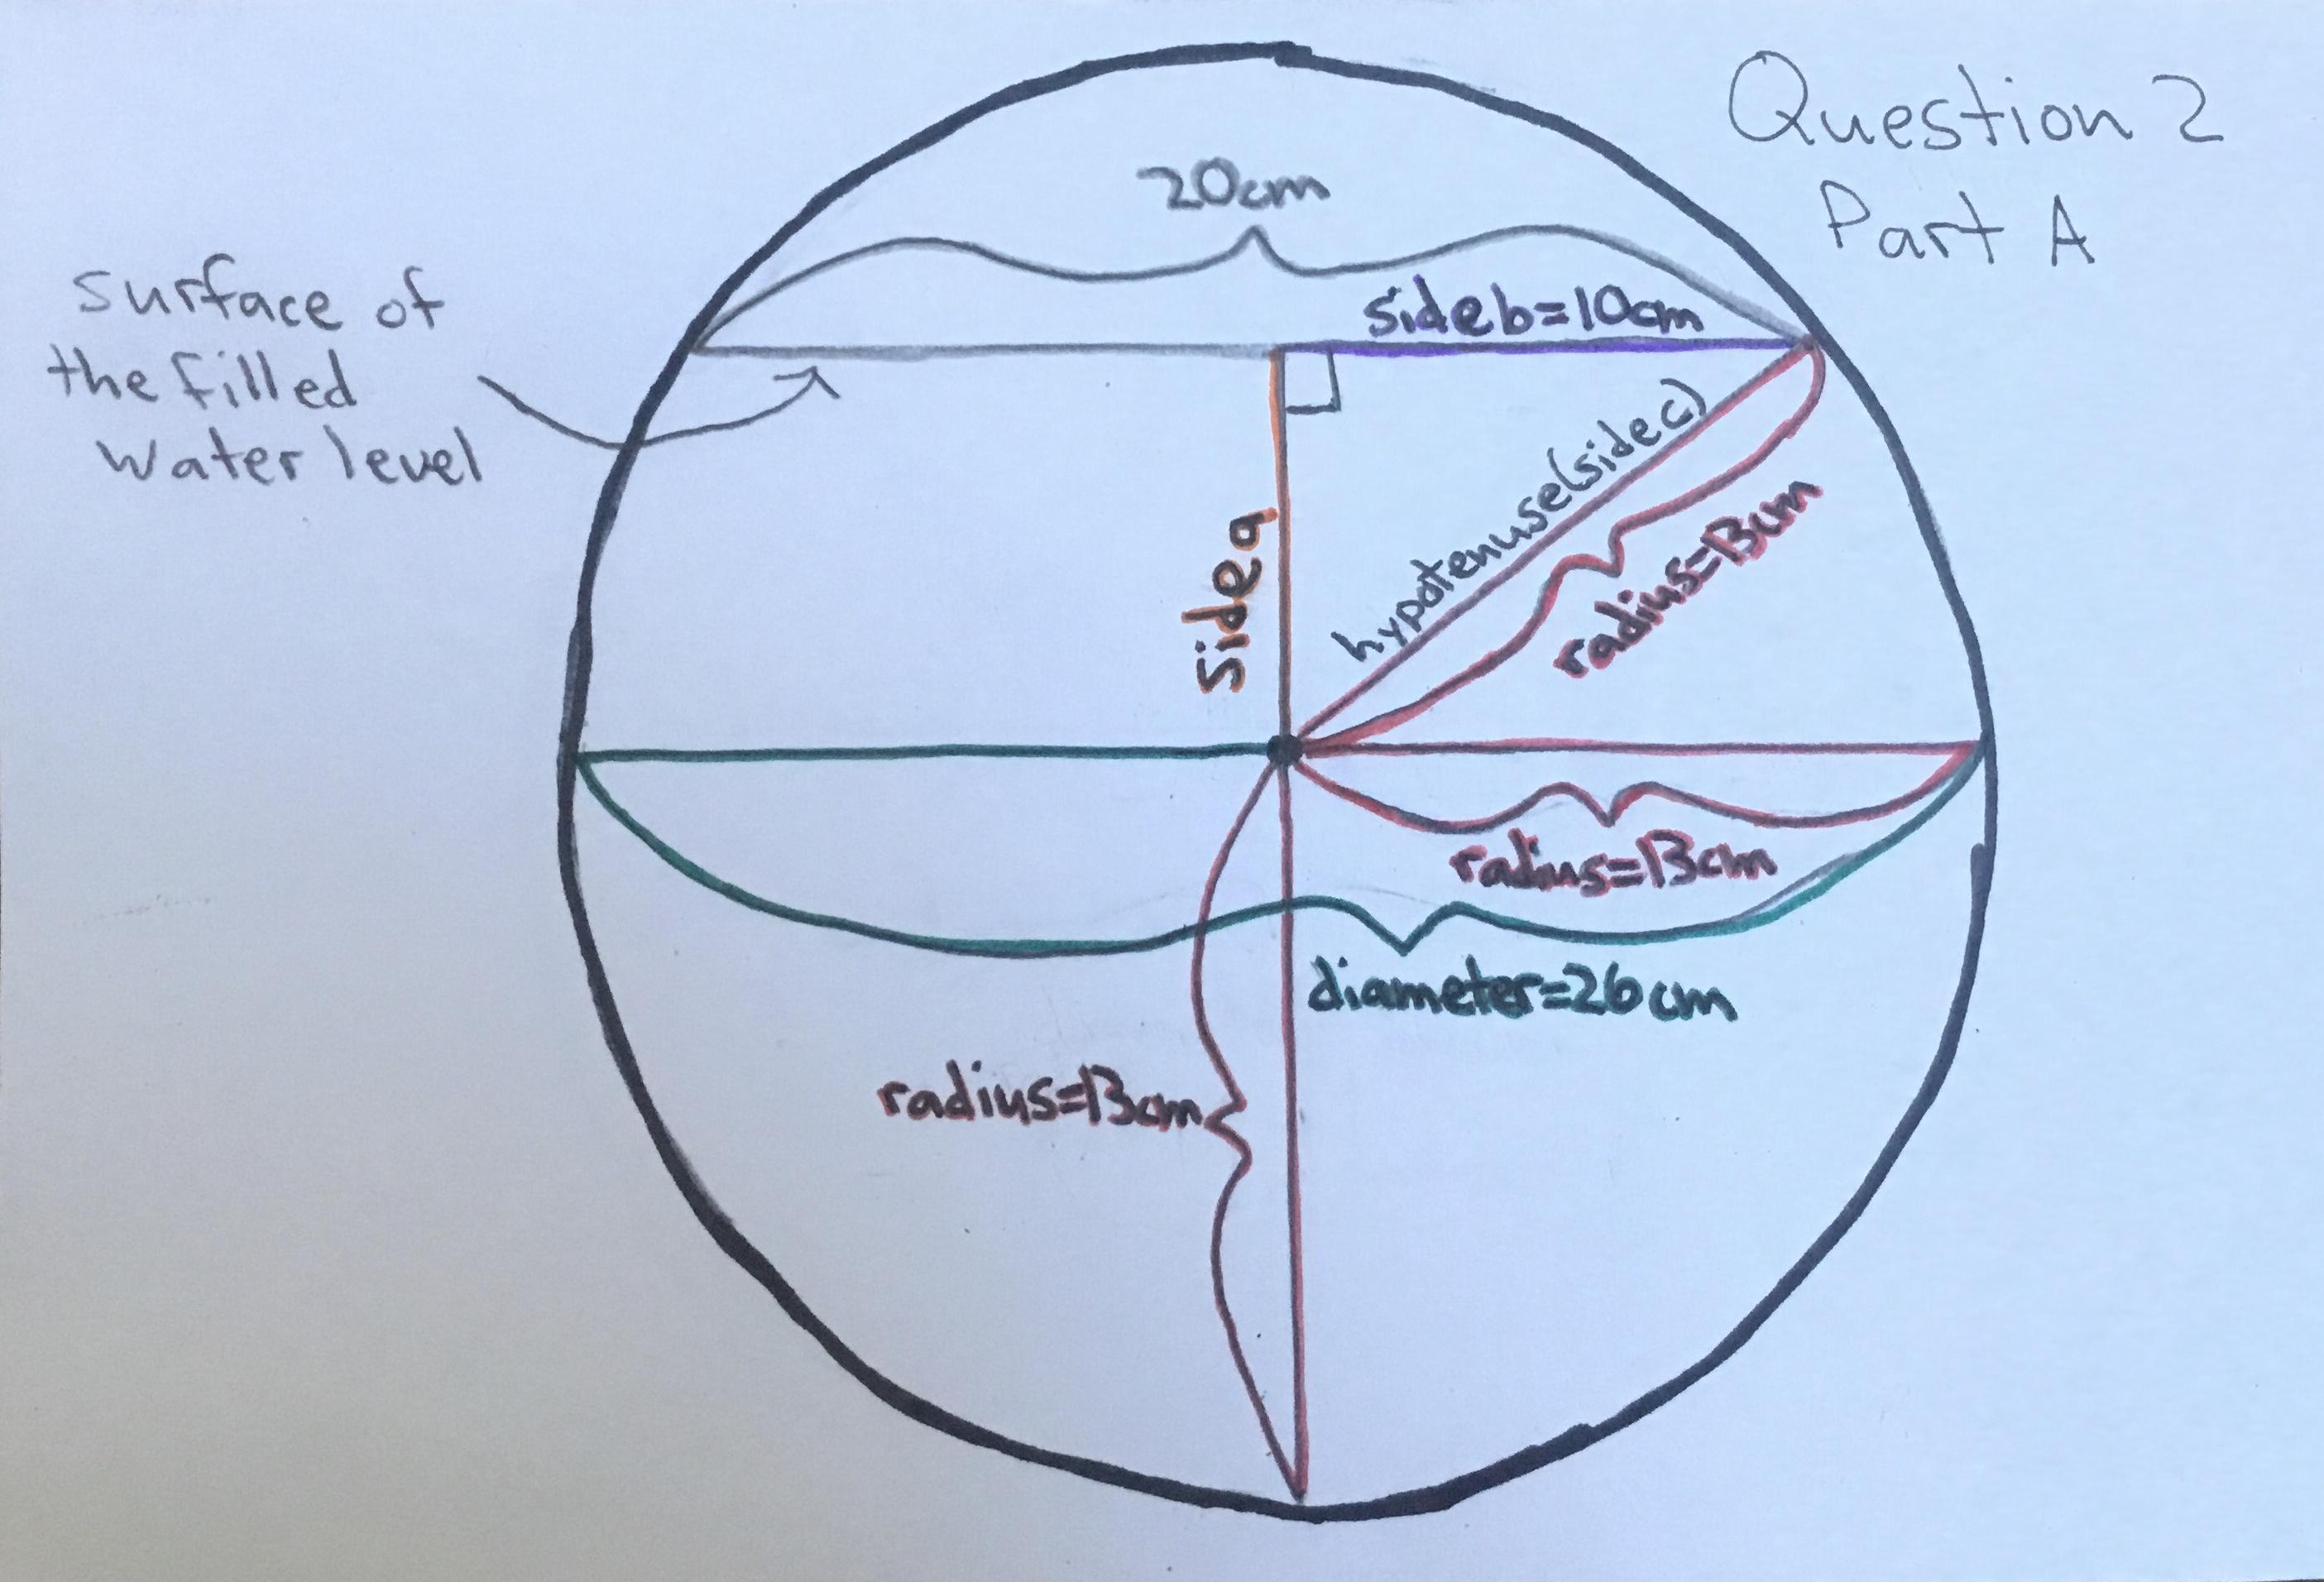 Question 2
Part A
20cm
side b=10cm
surface of
the filled
water level
side a
hypotenuse(side c)
radius=13cm
radius=13cm
diameter=26cm
radius=13cm